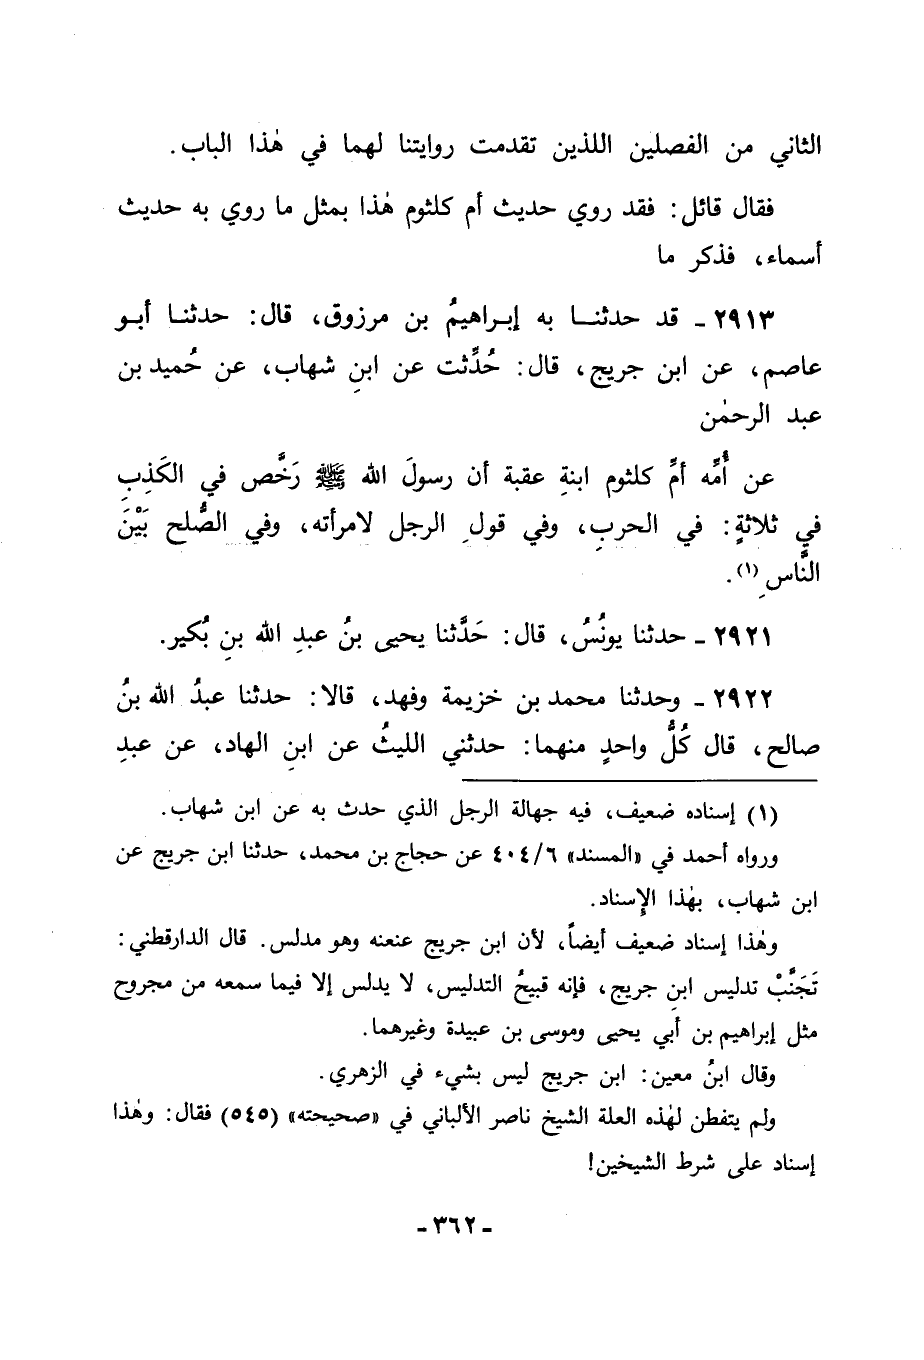 الثاني من الفصلين اللذين تقدمت روايتنا لهما في هٰذا الباب.
فقال قائل: فقد روي حديث أم كلثوم هٰذا بمثل ما روي به حديث
أسماء، فذكر ما
٢٩١٣ ـ قد حدثنا به إبراهيمُ بن مرزوق، قال: حدثنا أبو
عاصم، عن ابن جريج، قال: حُدِّثت عن ابنِ شهاب، عن حُميد بن
عبد الرحمٰن
عن أُمِّه أمِّ كلثوم ابنةِ عقبة أن رسولَ الله ﷺ رَخَّص في الكَذِبِ
في ثلاثةٍ: في الحربِ، وفي قولِ الرجل لامرأته، وفي الصُّلح بَيْنَ
النَّاسِ(١).
٢٩٢١ ـ حدثنا يونُسُ، قال: حَدَّثنا يحيى بنُ عبدِ الله بنِ بُكير.
٢٩٢٢ ـ وحدثنا محمد بن خزيمة وفهد، قالا: حدثنا عبدُ الله بنُ
صالح، قال كُلُّ واحدٍ منهما: حدثني الليثُ عن ابنِ الهاد، عن عبدِ
(١) إسناده ضعيف، فيه جهالة الرجل الذي حدث به عن ابن شهاب.
ورواه أحمد في «المسند» ٤٠٤/٦ عن حجاج بن محمد، حدثنا ابن جريج عن
ابن شهاب، بهٰذا الإِسناد.
وهٰذا إسناد ضعيف أيضاً، لأن ابن جريج عنعنه وهو مدلس. قال الدارقطني:
تَجَنَّبْ تدليس ابنِ جريج، فإنه قبيحُ التدليس، لا يدلس إلا فيما سمعه من مجروح
مثل إبراهيم بن أبي يحيى وموسى بن عبيدة وغيرهما.
وقال ابنُ معين: ابن جريج ليس بشيء في الزهري.
ولم يتفطن لهٰذه العلة الشيخ ناصر الألباني في «صحيحته» (٥٤٥) فقال: وهٰذا
إسناد على شرط الشيخين!
ـ ٣٦٢ ـ